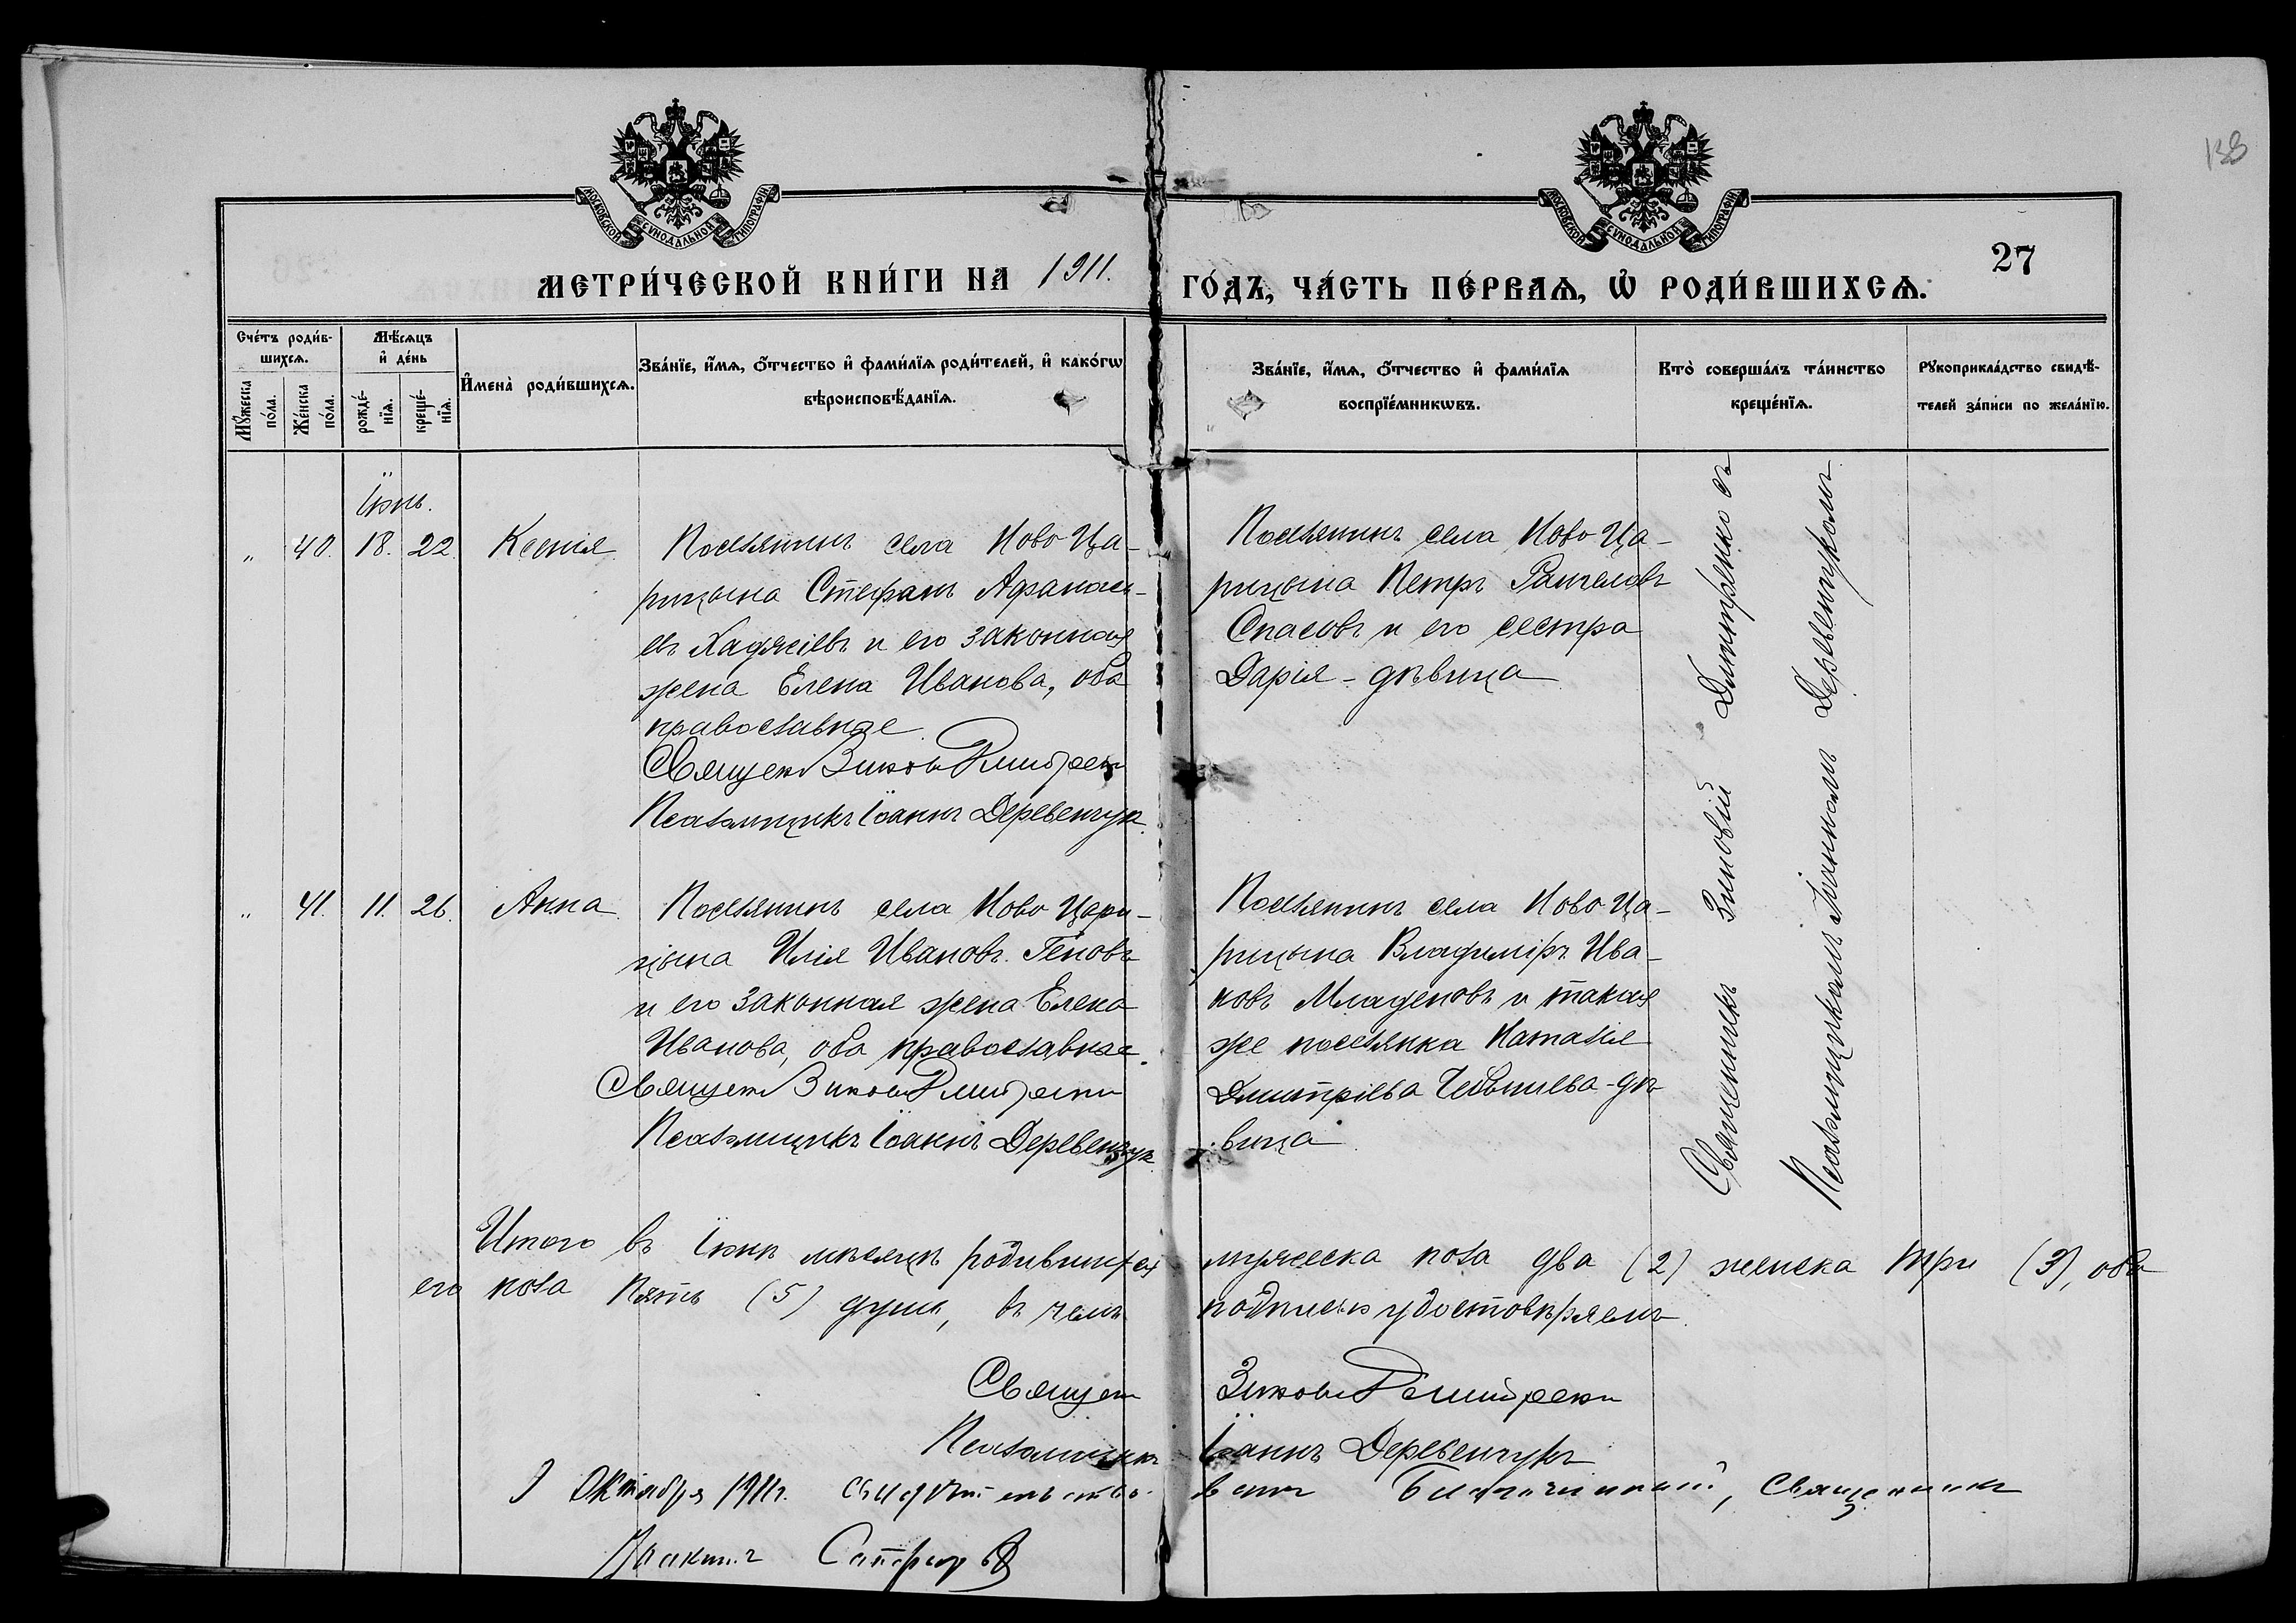 138
МОСКОВСКОЙ СѴНОДАЛЬНОЙ ТИПОГРАФІИ
МОСКОВСКОЙ СѴНОДАЛЬНОЙ ТИПОГРАФІИ
27
МЕТРИ́ЧЕСКОЙ КНИ́ГИ НА 1911. ГО́ДЪ, ЧА́СТЬ ПЕ́РВАѦ, Ѽ РОДИ́ВШИХСѦ.
Сче́тъ роди́в-
шихсѧ.
Мꙋ́жеска
по́ла.
Же́нска
по́ла.
Мѣ́сѧцъ
и҆ де́нь
рожде́-
нїѧ.
креще́-
нїѧ.
И҆мена̀ роди́вшихсѧ.
Зва́нїе, и҆́мѧ, ѻ҆́тчество и҆ фами́лїѧ роди́телей, и҆ како́гѡ
вѣроисповѣ́данїѧ.
Зва́нїе, и҆́мѧ, ѻ҆́тчество и҆ фами́лїѧ
воспрїе́мникѡвъ.
Кто̀ соверша́лъ та́инство
креще́нїѧ.
Рꙋкоприкла́дство свидѣ́-
телей за́писи по жела́нїю.
Іюнь.
" 40. 18. 22. Ксенія
Поселянинъ села Ново Ца-
рицына Стефанъ Афанась-
евъ Хаджіевъ и его законная
жена Елена Иванова, оба
православные.
Священ Зинов Дмитрен
Псаломщикъ Іоаннъ Деревенчук.
Поселянинъ села Ново Ца-
рицына Петръ
Спасовъ и его сестра
Дарія - дѣвица
" 41. 11. 26. Анна
Поселянинъ села Ново Цари-
цына Илія Ивановъ Геновъ
и его законная жена Елена
Иванова, оба православные.
Священ Зинов Дмитренк
Псаломщикъ Іоаннъ Деревенчук.
Поселянинъ села Ново Ца-
рицына Владиміръ Ива-
новъ Младеновъ и такая
же поселянка Наталія
Дмитріева - дѣ-
вица
Священникъ Зиновій Дмитренко съ
Псаломщикомъ Іоанномъ Деревенчукомъ
Итого въ Іюнѣ мѣсяцѣ родившихся мужеска пола два (2) женска три (3), обо
его пола пять (5) душъ, въ чемъ подписью удостовѣряемъ.
Священ Зинов Дмитренк
Псаломщикъ Іоаннъ Деревенчукъ
Октября 1911г. свидѣтельство-
валъ Благочинный, Священник